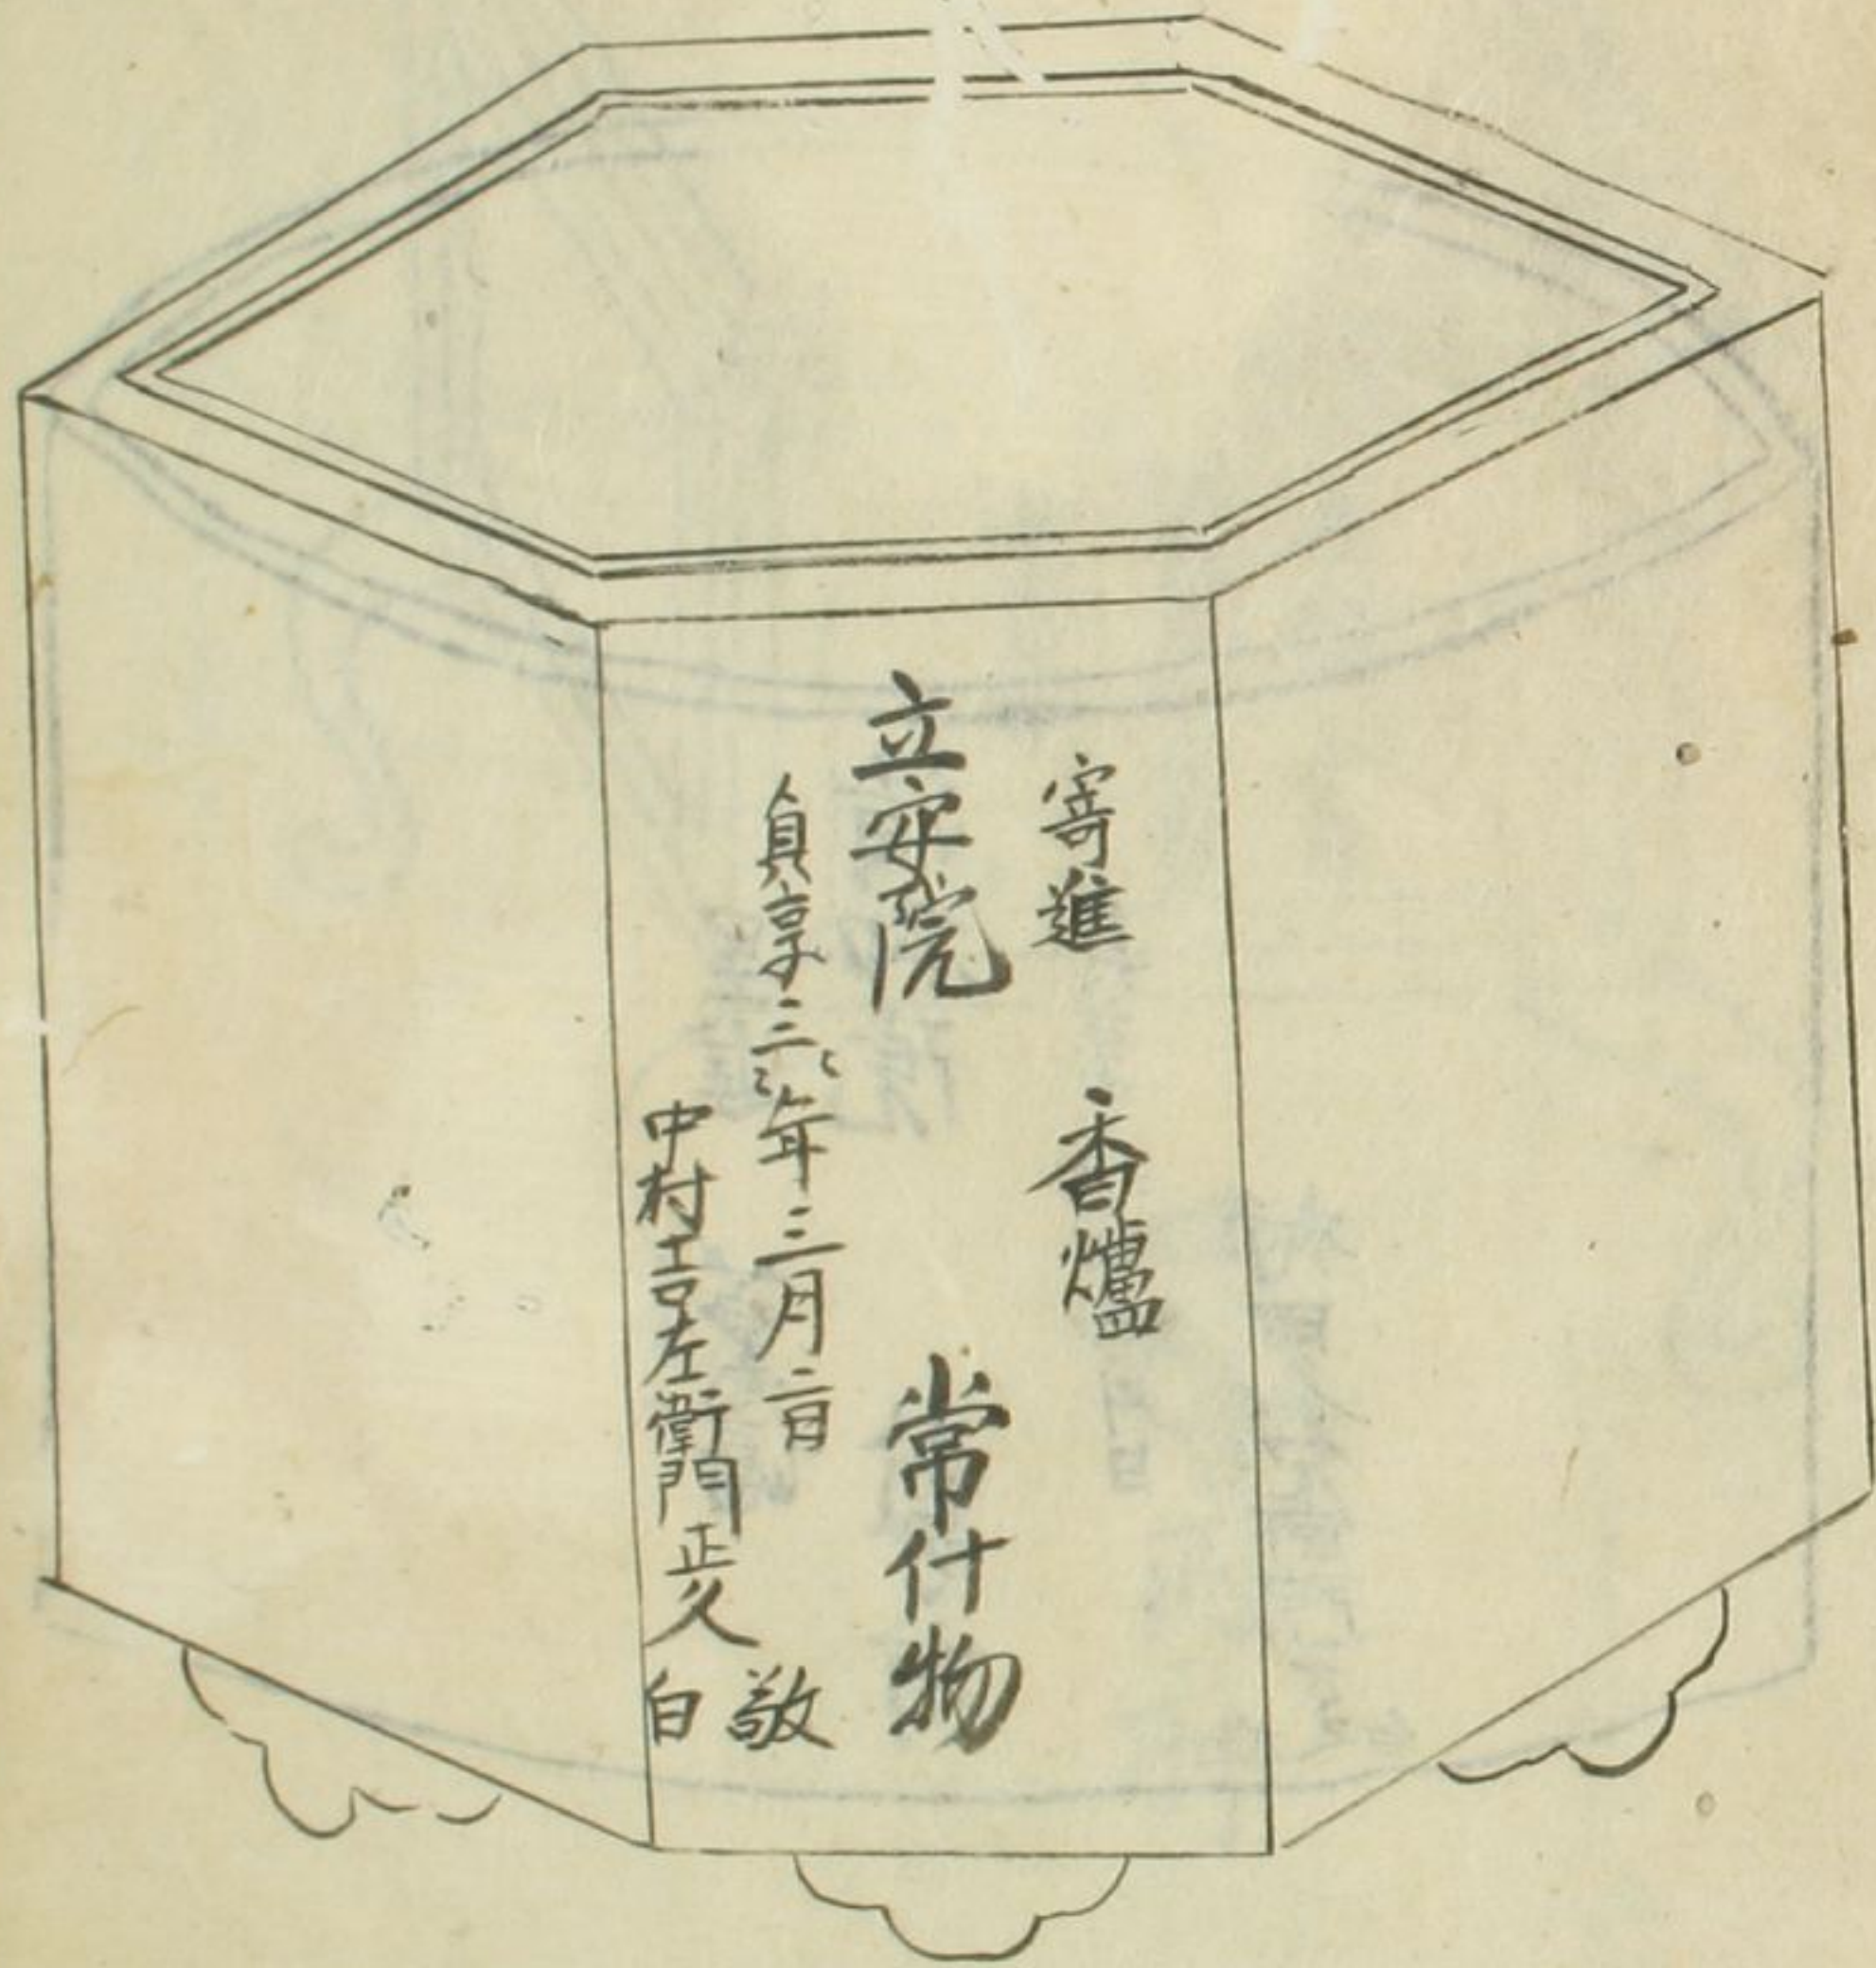 寄進　香爐
立安院　常什物
貞享三年三月二日
中村吉左衛門正久
敬白